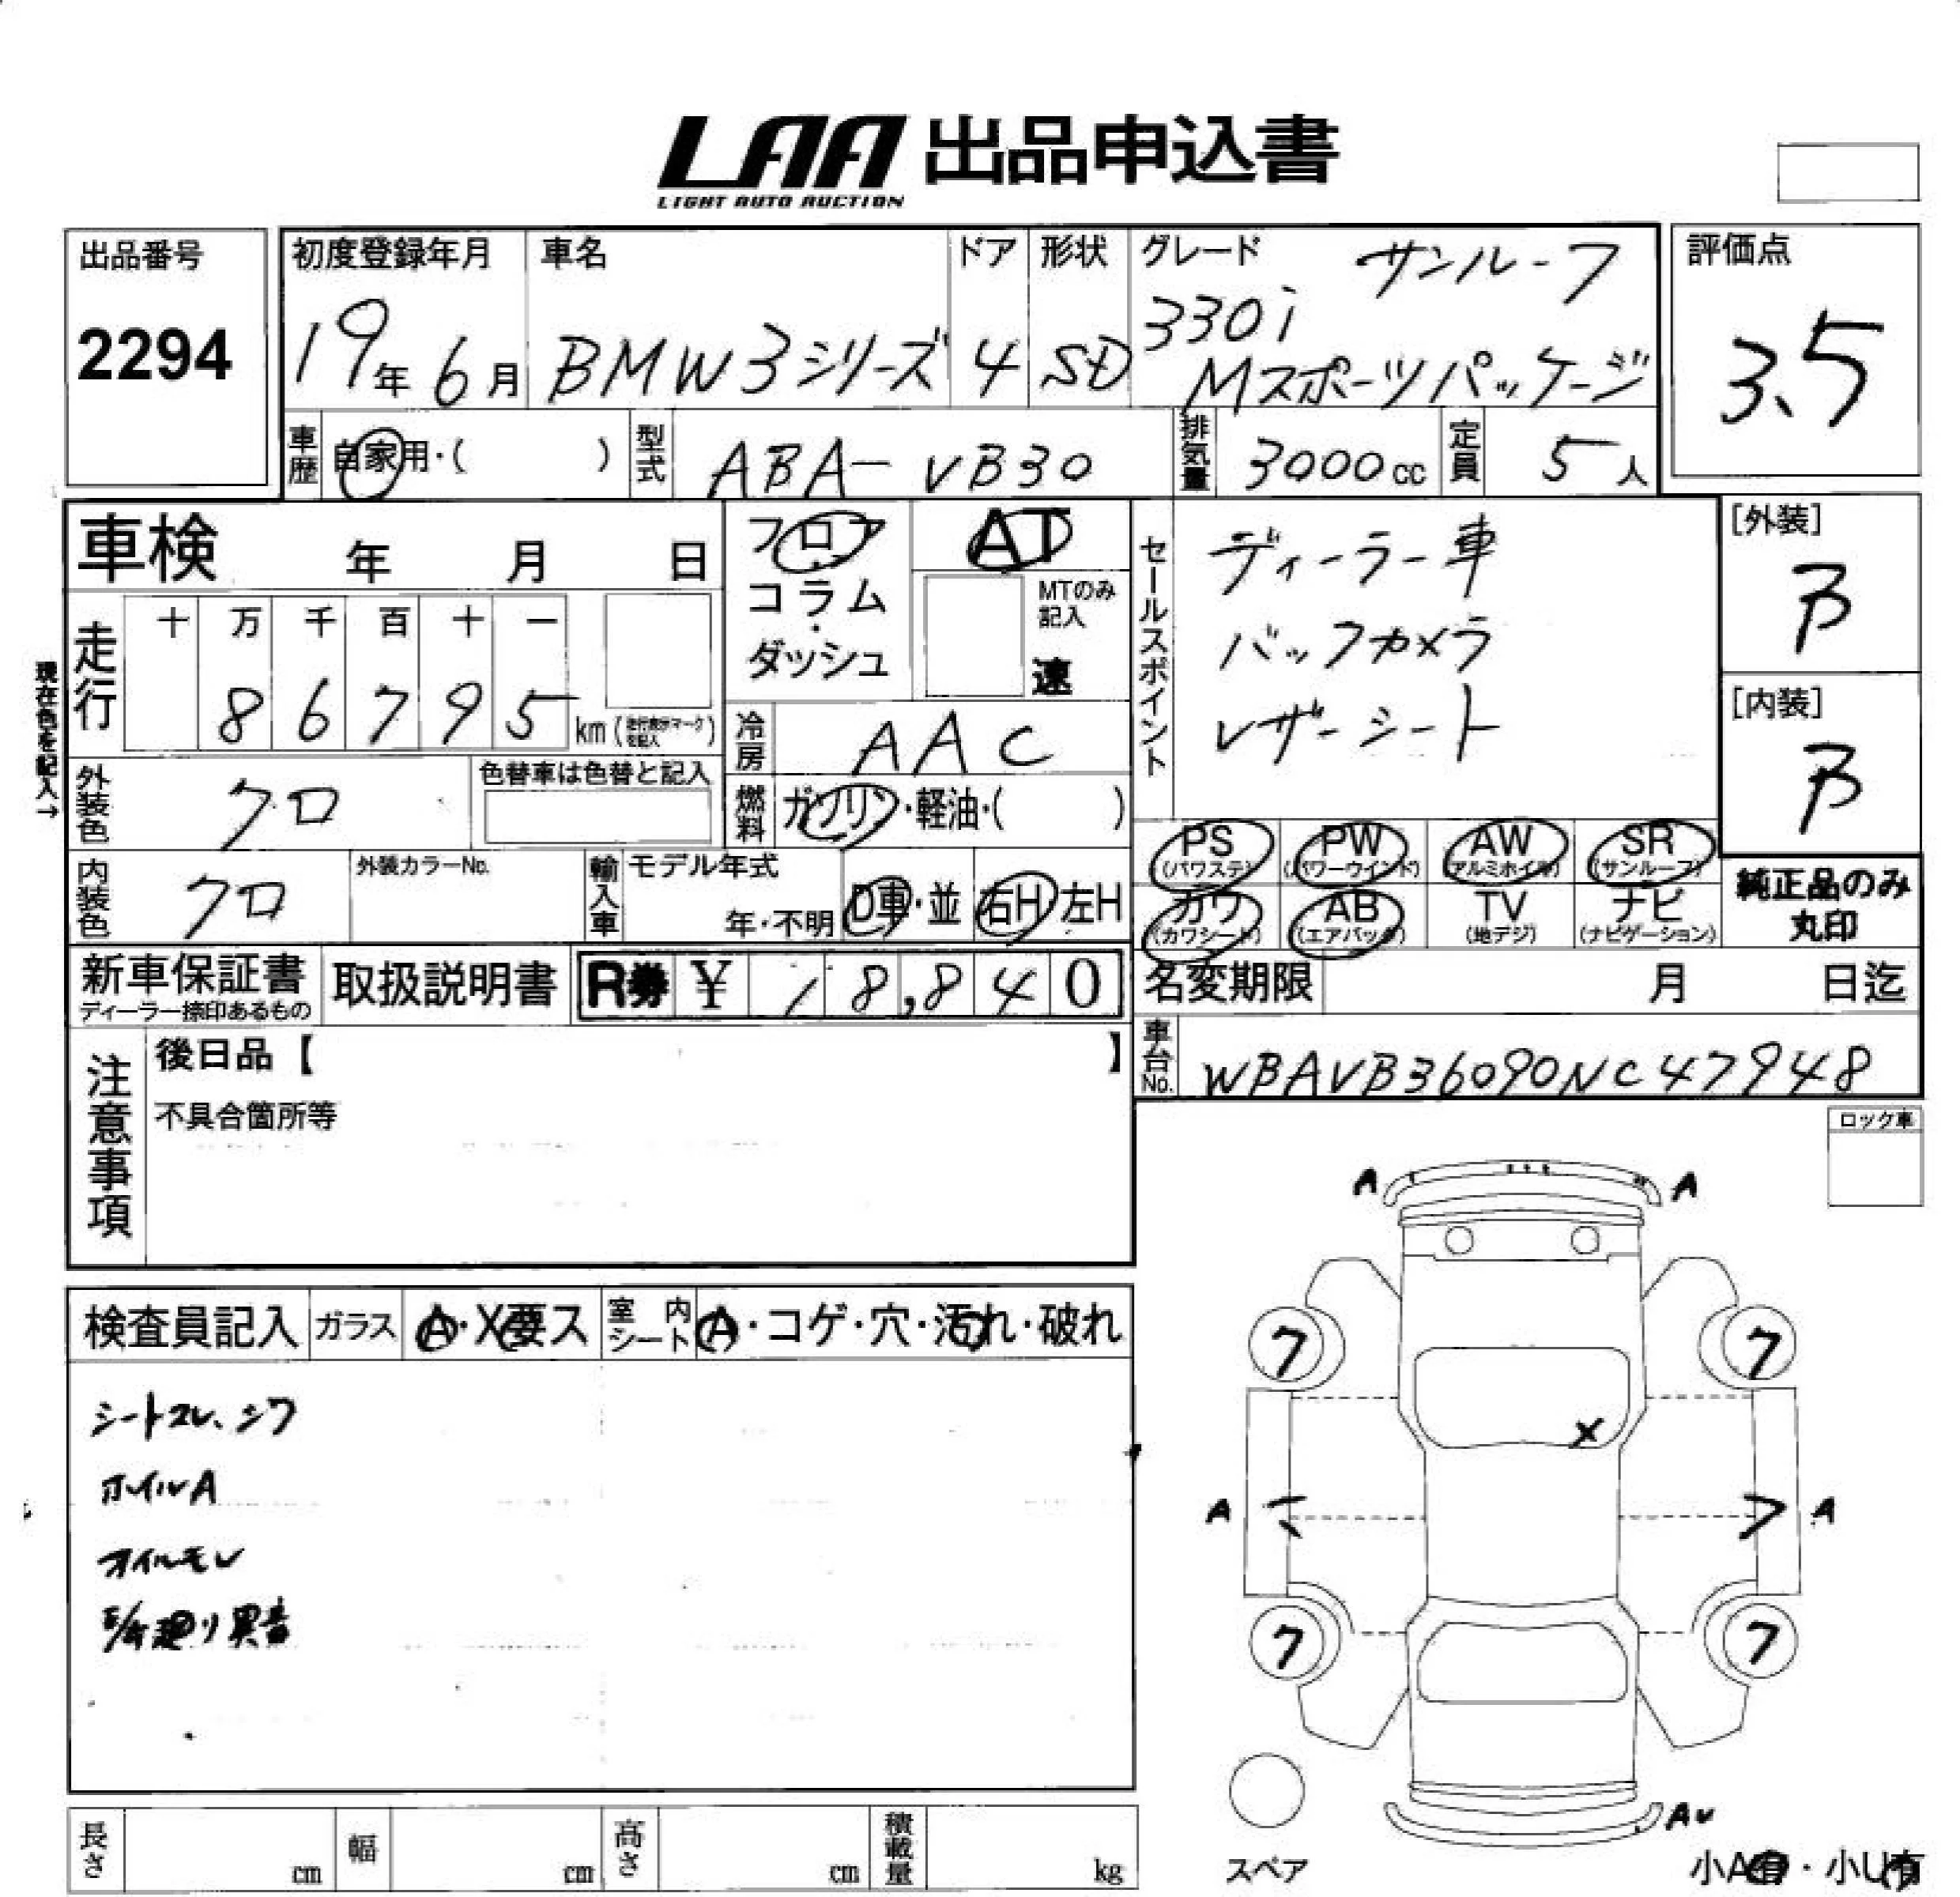 LAA 出品申込書
LIGHT AUTO AUCTION
出品番号
2294
初度登録年月
19年 6月
車名
BMW3シリーズ
ドア
4
形状
SD
グレード
サンルーフ
330i
Mスポーツパッケージ
評価点
3.5
車歴 自家用・( )
型式 ABA-VB30
排気量 3000cc
定員 5人
車検 年 月 日
走行
十 万 千 百 十 一
8 6 7 9 5 km (走行表示マークを記入)
現在色を記入→
外装色 クロ
色替車は色替と記入
内装色 クロ
外装カラーNo.
フロア・コラム・ダッシュ
AT
MTのみ記入
速
冷房 AAC
燃料 ガソリン・軽油・( )
輸入車 モデル年式
年・不明
D車・並
右H 左H
セールスポイント
ディーラー車
バックカメラ
レザーシート
[外装]
B
[内装]
B
PS (パワステ)
PW (パワーウインド)
AW (アルミホイル)
SR (サンルーフ)
カワ (カワシート)
AB (エアバック)
TV (地デジ)
ナビ (ナビゲーション)
純正品のみ
丸印
新車保証書
ディーラー捺印あるもの
取扱説明書
R券 ¥ 18,840
名変期限 月 日迄
車台No. WBAVB36090NC47948
注意事項
後日品【 】
不具合箇所等
ロック車
検査員記入
ガラス A・X要ス
室内シート A・コゲ・穴・汚れ・破れ
シートスレ、シワ
ホイルA
オイルモレ
廻り異音
A A
ク ク
X
A A
ク ク
AU
スペア
小A有・小U有
長さ cm
幅 cm
高さ cm
積載量 kg